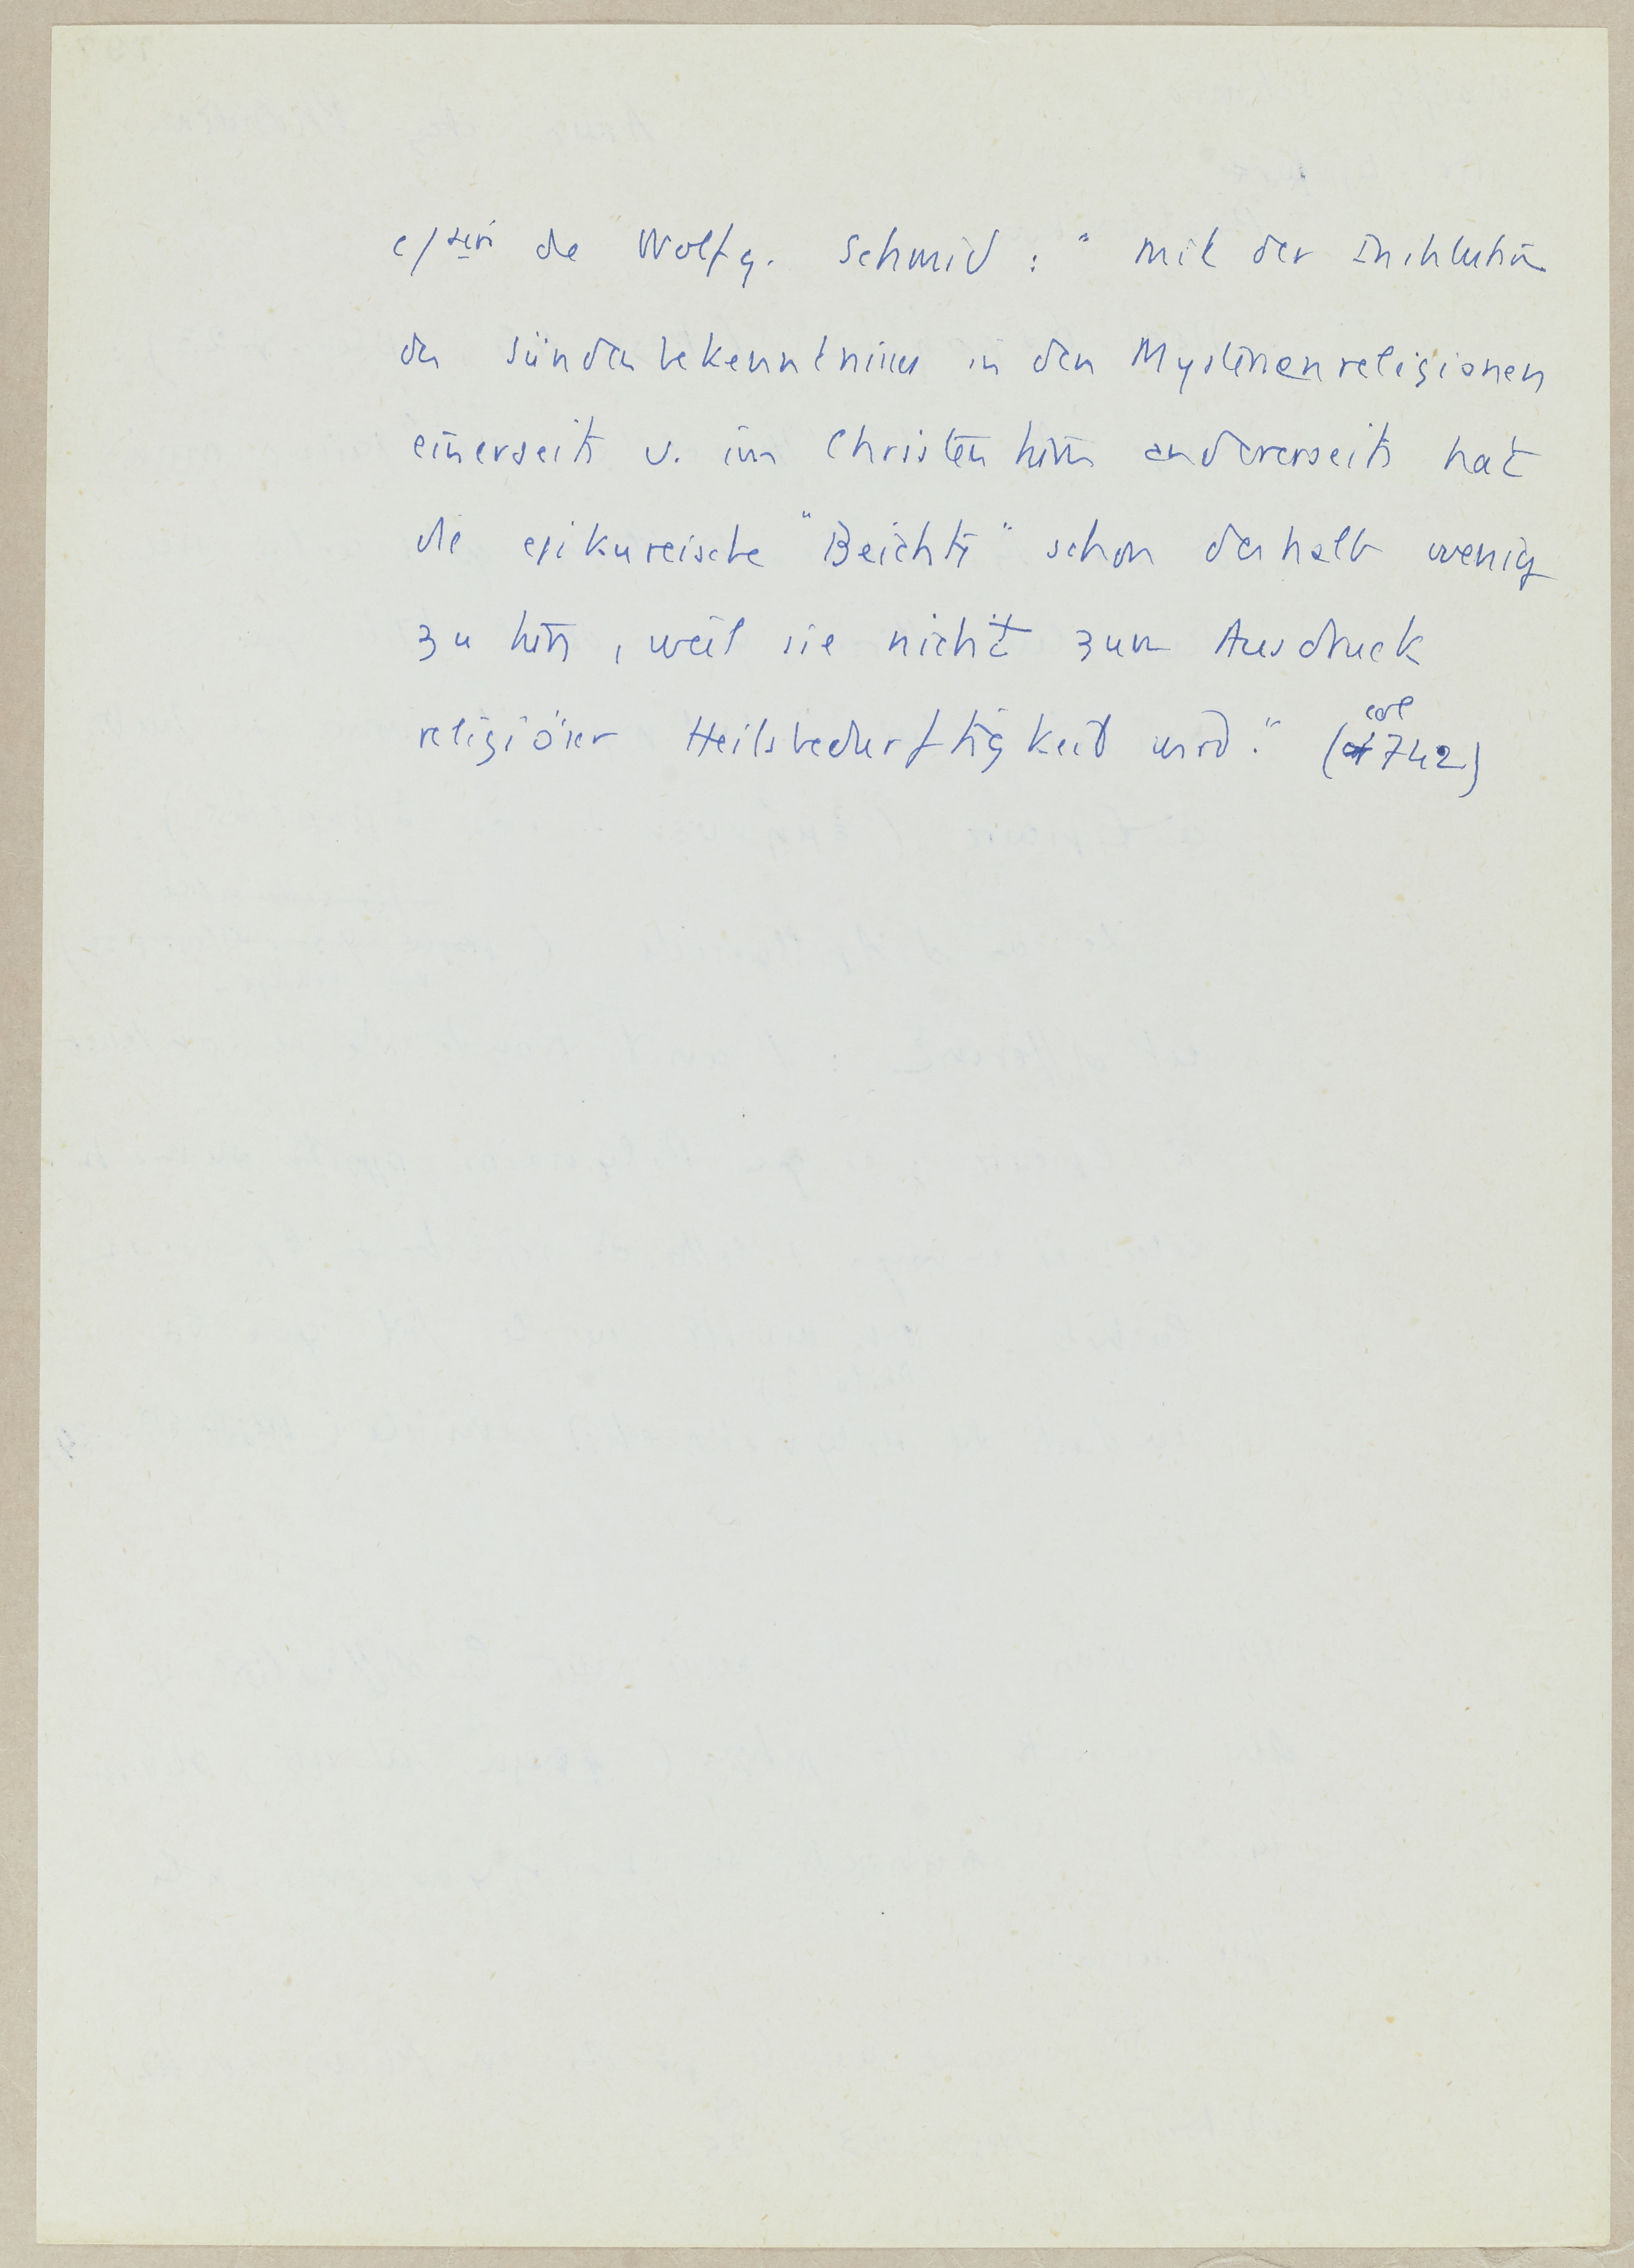 c/ de Wolfg. Schmid : " Mit der Institution
des Sündenbekenntnisses in den Mysterienreligionen
einerseits u. im Christentum andererseits hat
die epikureische "Beichte" schon deshalb wenig
zu tun, weil sie nicht zum Ausdruck
religiöser Heilsbedürftigkeit wird." (col 742)